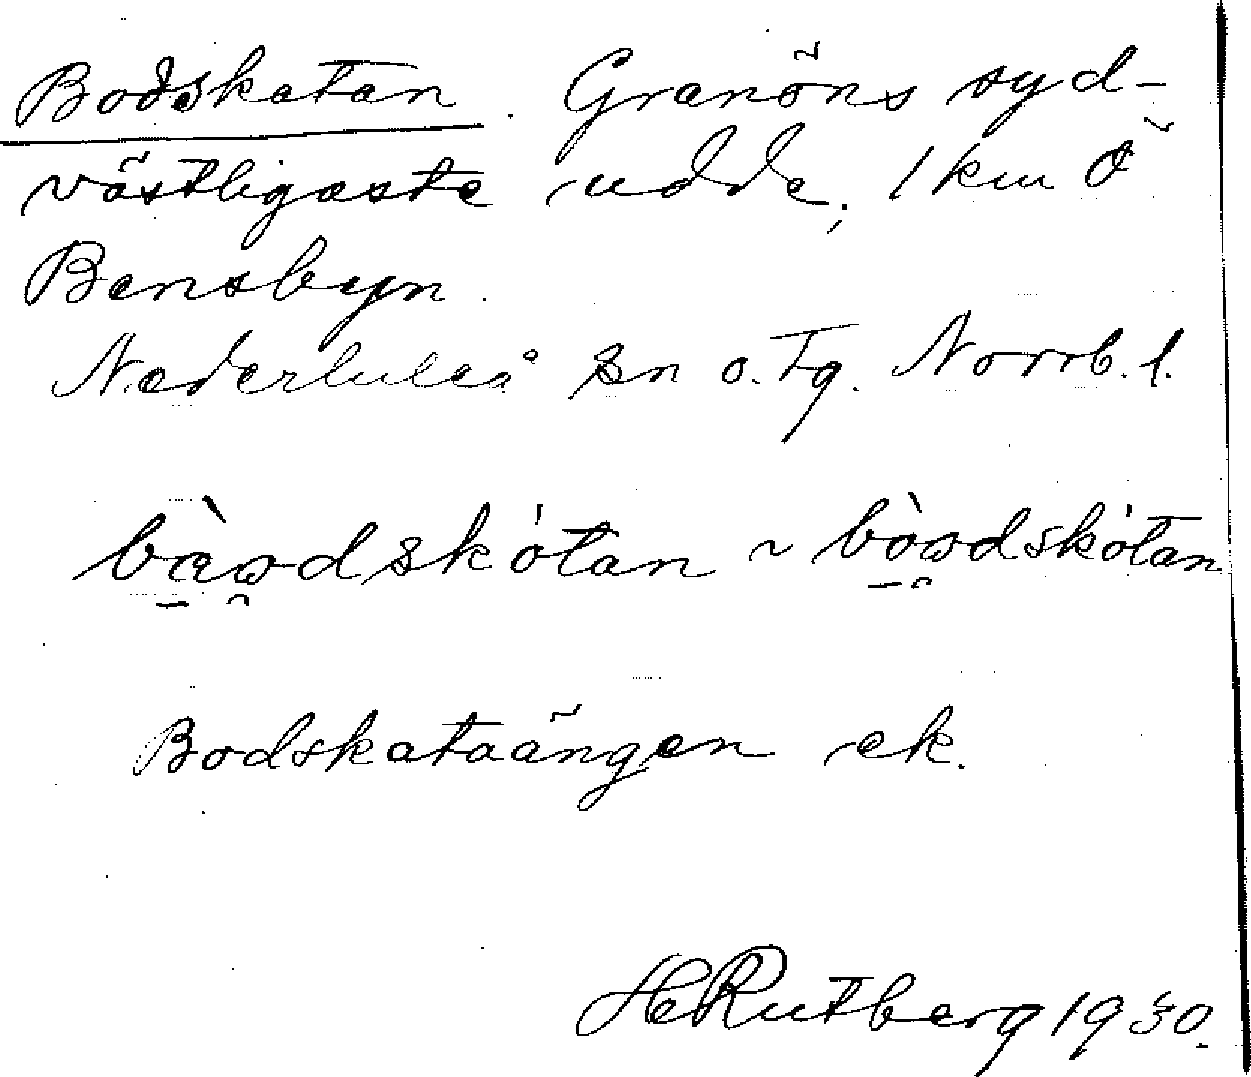 Bodskatan. Granöns syd-
västligaste udde, 1 km Ö
Bensbyn.
Nederluleå sn o. tg. Norrb. l.
bòdskótan ~ bòodskótan
Bodskataängen ek.
H Rutberg 1930.